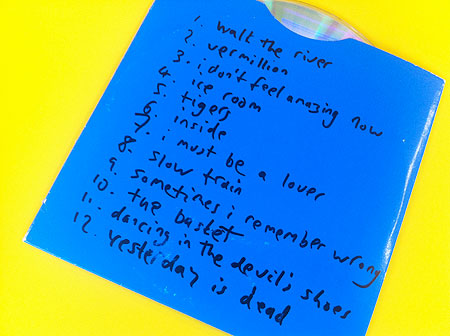 1. walk the river
2. vermillion
3. i don't feel amazing now
4. ice room
5. tigers
6. inside
7. i must be a lover
8. slow train
9. sometimes i remember wrong
10. the basket
11. dancing in the devil's shoes
12. yesterday is dead